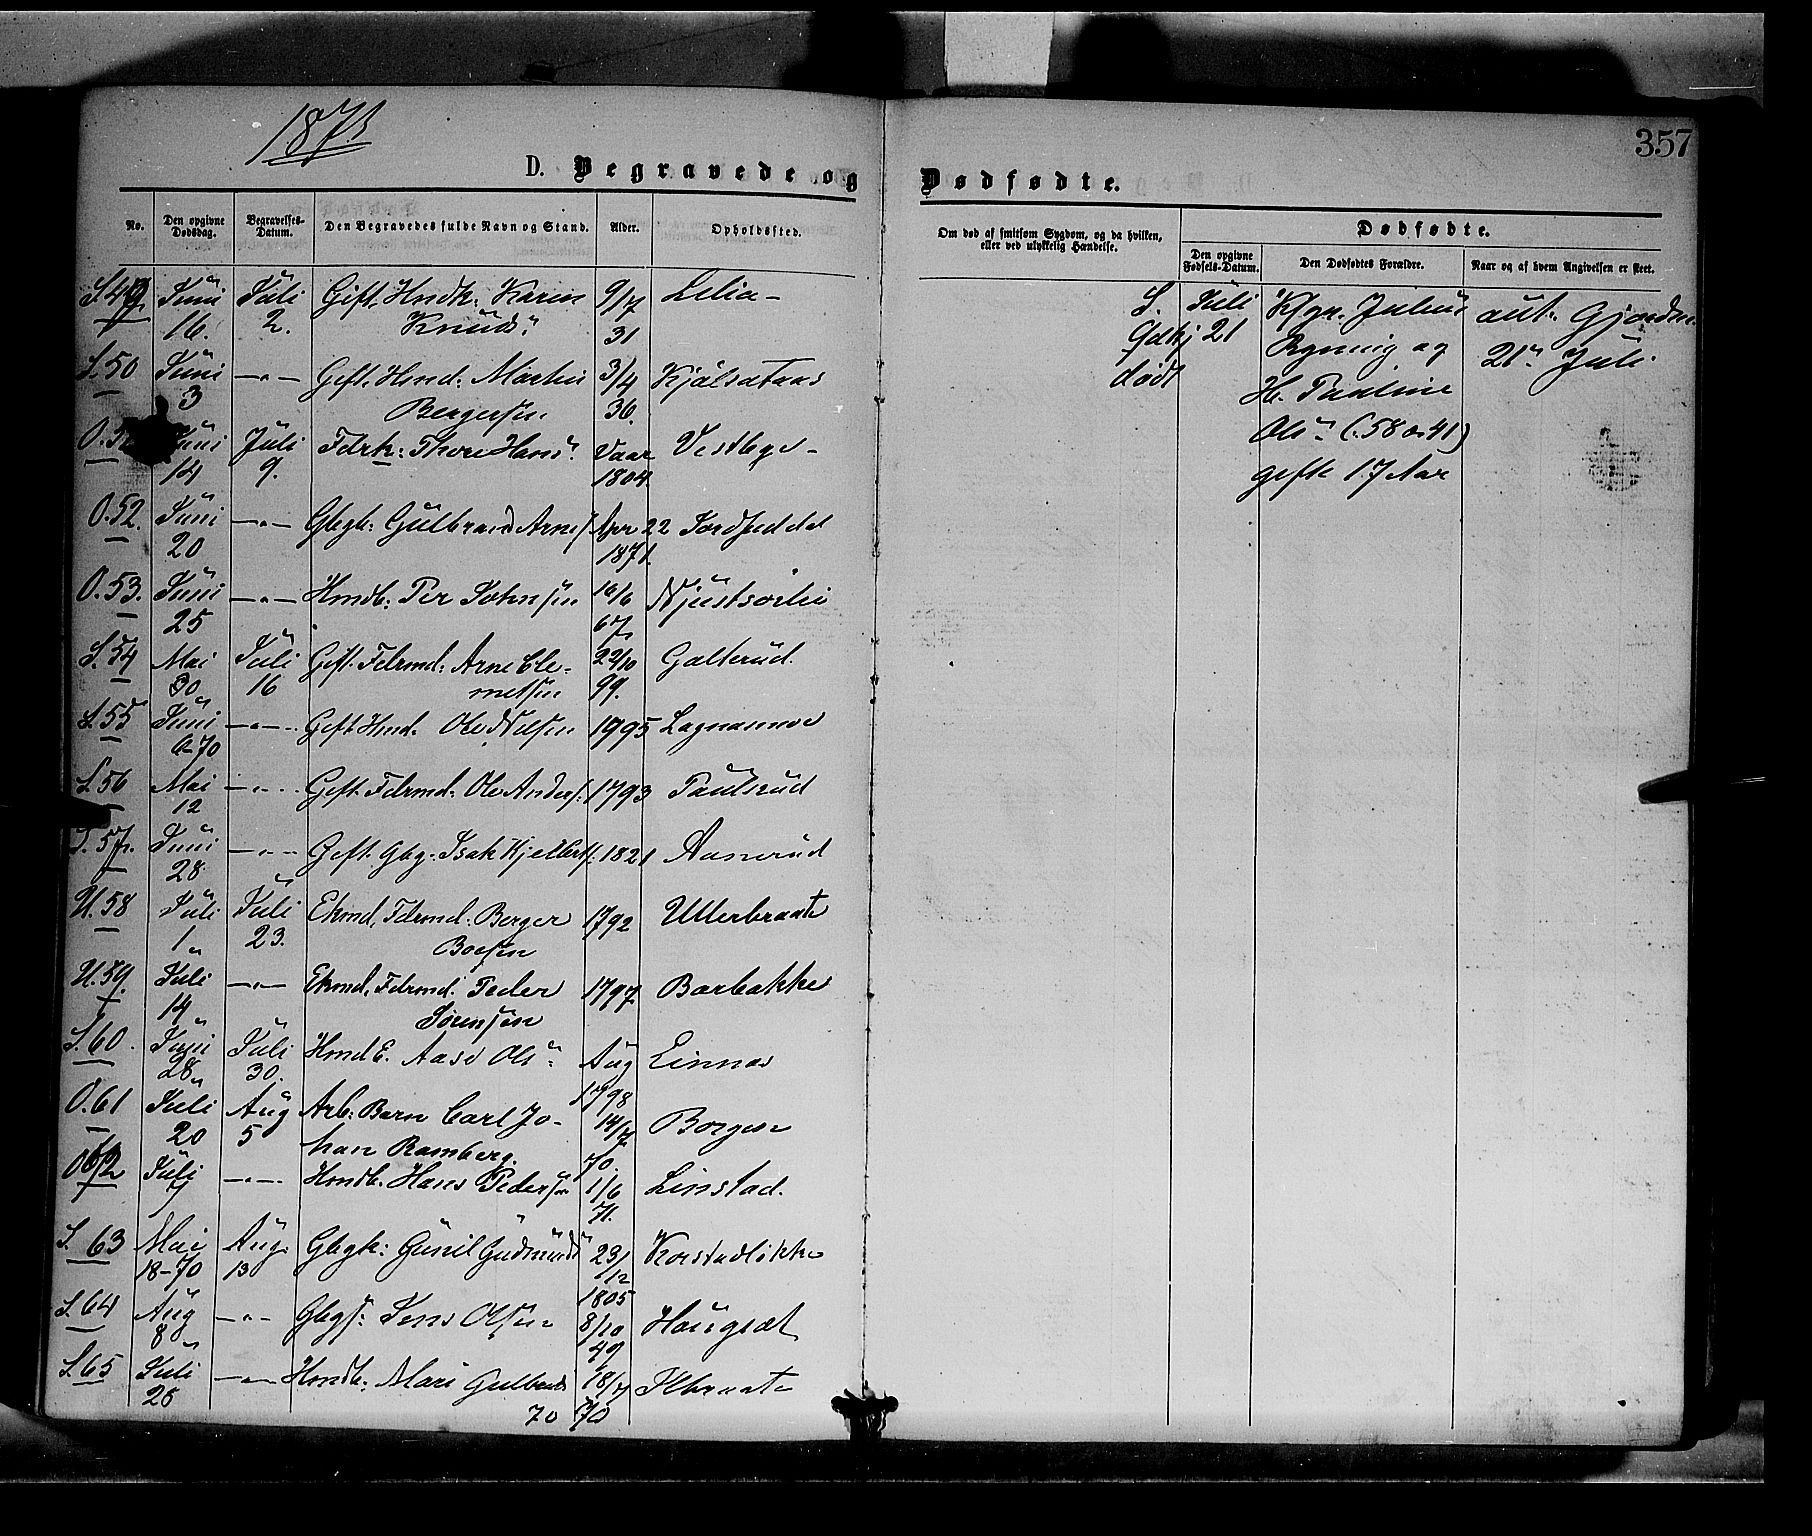 1871
357
D. Begravede og Dødfødte.
No.
Den opgivne Dødsdag.
Begravelses-Datum.
Den Begravedes fulde Navn og Stand.
Alder.
Opholdssted.
Om død af smitsom Sygdom, og da hvilken, eller ved ulykkelig Hændelse.
Dødfødte.
Den opgivne Fødsels-Datum.
Den Dødfødtes Forældre.
Naar og af hvem Angivelsen er skeet.
S. 49 Juni Juli Gift. Hndk: Karin 9/7 Lelia
16. 2. Knuds" 31
S. 50 Juni —"— Gift. Hmd: Martin 3/4
3 Bergersen 36.
O. Juni Juli Fdrk: Thore Hans" Vaar Vestbye
14 9. 1804
O. 52. Juni —"— Gbgk: Gulbrand Arnes Apr 22
20 1871.
O. 53. Juni —"— Hmdb: Per Johnsen 16/6
25 67
S. 54 Mai Juli Gift. Fdrmd: Arne Cle- 22/10 Galterud.
30 16 metsen 99.
S. 55 Juni —"— Gift. Hmd. Ole Nilsen 1795
6-70
S. 56 Mai —"— Gift. Fdrmd: Ole Anders. 1793 Paulsrud
12
S. 57. Juni —"— Gift. Gbg. Isak Kjelbers. 1821 Aanerud
28
U. 58 Juli Juli Ekmd. Fdrmd. Berger 1792 Ullerbraate
1 23. Boesen
U. 59. Juli —"— Ekmd. Fdrmd. Peder 1797 Barbakke
14 Sørensen
S. 60. Juni Juli Hmd E. Aase Ols" Aug Linnæs
28 30. 1798
O. 61 Juli Aug Arb. Barn Carl Jo- 14/7 Borgen
20 5 han Ramberg. 70
O 62 Juli —"— Hmdb. Hans Pedersen 1/6 Linstad.
71.
S. 63 Mai Aug. Gbgk: Gunil Gudmunds" 23/12 Korstadløkke
18-70 13 1805
S. 64 Aug —"— Gbgs: Jens Olsen 8/10 Haugset
8 49
S. 65 Juli —"— Hmdb: Mari Gulbrands 18/7
25 70 70
S. Juli Julius aut. Gjordm.
21 Bryning og 21" Juli
dødt H. Pauline
Ols" (58 o. 41)
gifte 17 Aar